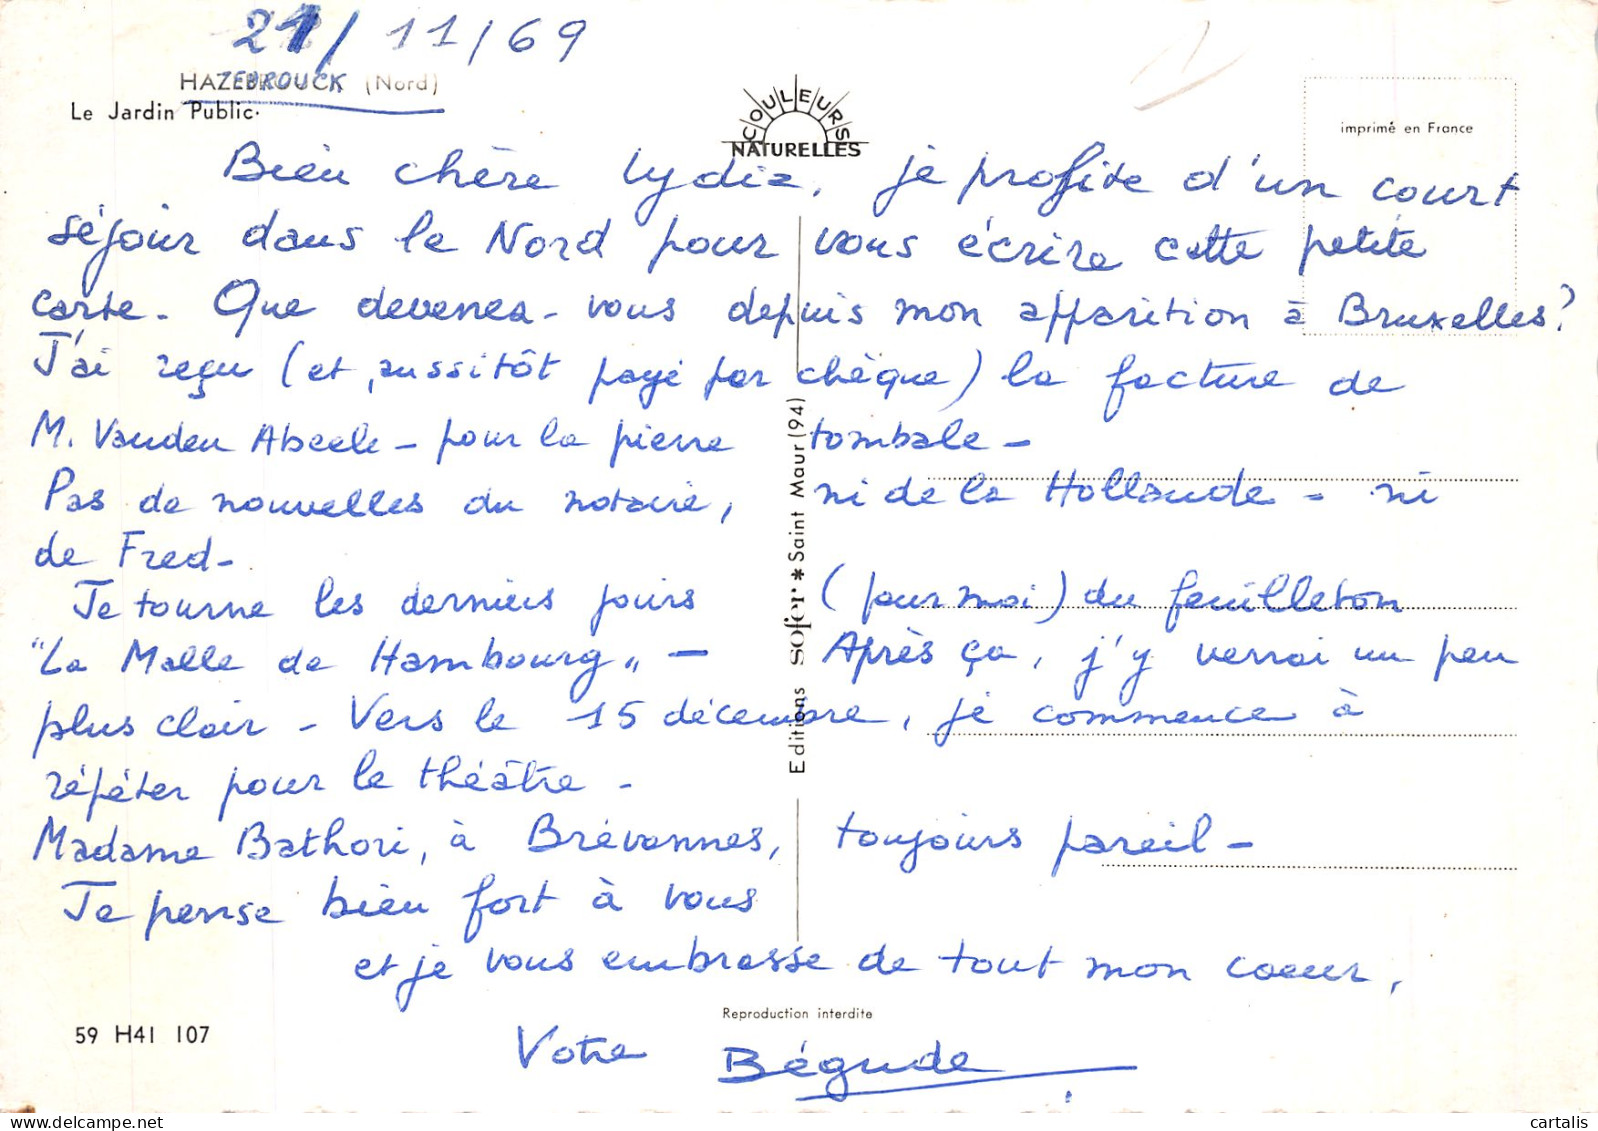 21/11/69
HAZEBROUCK (Nord)
Le Jardin Public.
COULEURS
NATURELLES
imprimé en France
Bien chère Lydia, je profite d'un court
séjour dans le Nord pour vous écrire cette petite
carte. Que devenez-vous depuis mon apparition à Bruxelles?
J'ai reçu (et, aussitôt payé par chèque) la facture de
M. Vanden Abeele - pour la pierre tombale -
Pas de nouvelles du notaire, ni de la Hollande - ni
de Fred -
Je tourne les derniers jours (pour moi) du feuilleton
"La Malle de Hambourg" - Après ça, j'y verrai un peu
plus clair - Vers le 15 décembre, je commence à
répéter pour le théâtre -
Madame Bathori, à Brévannes, toujours pareil -
Je pense bien fort à vous
et je vous embrasse de tout mon coeur,
Votre Bégude
Editions sofer * Saint Maur (94)
Reproduction interdite
59 H41 107
cartalis